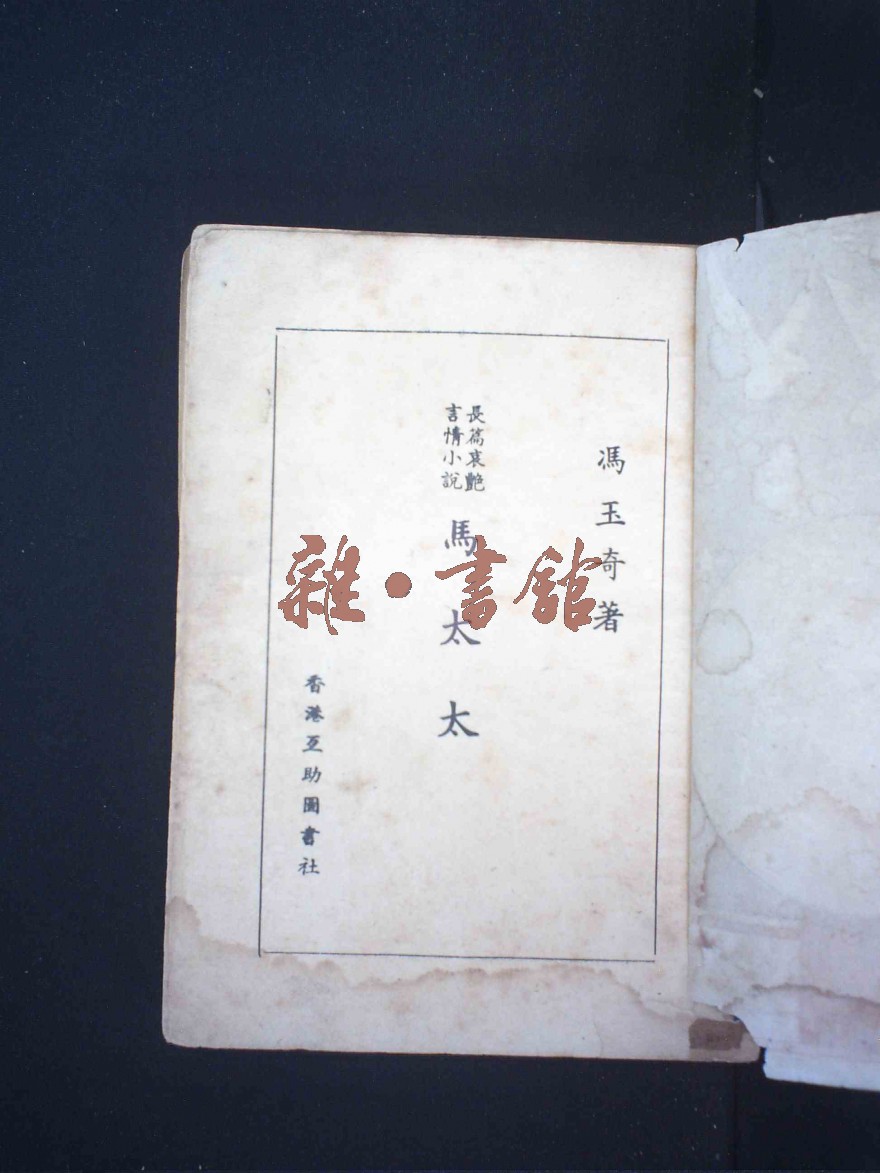 馮玉奇著
長篇哀艷
言情小說
馬太太
香港互助圖書社
雜·書館